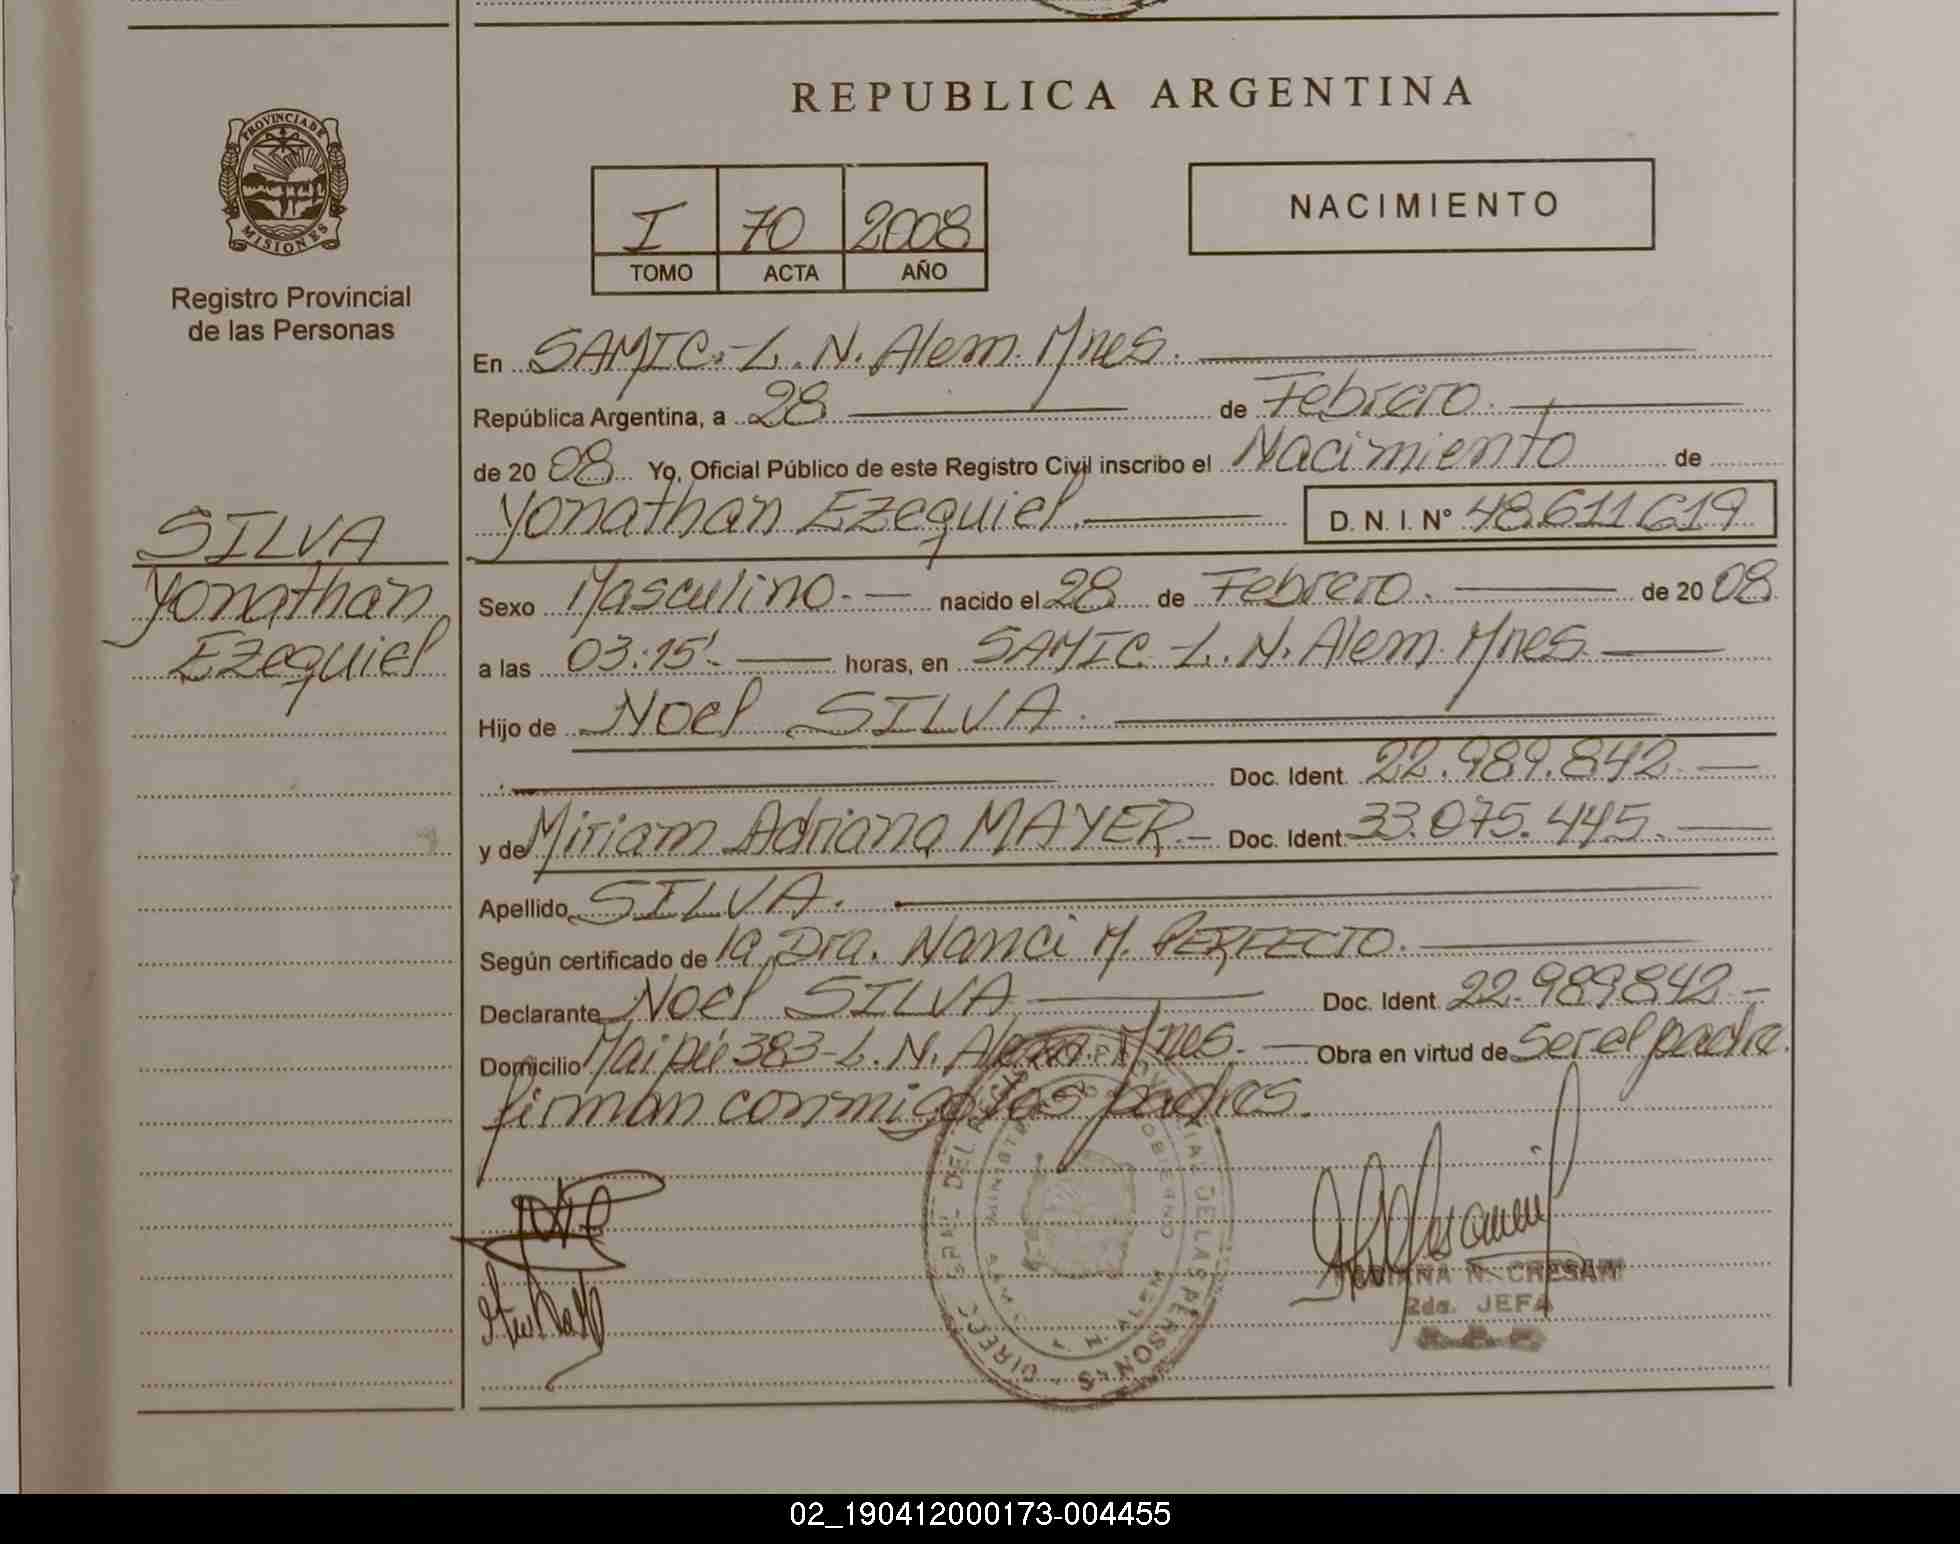 REPUBLICA ARGENTINA
PROVINCIA DE
MISIONES
Registro Provincial
de las Personas
I 70 2008
TOMO ACTA AÑO
NACIMIENTO
SILVA
Yonathan
Ezequiel
En SAMIC.-L.N. Alem. Mnes.
República Argentina, a 28 de Febrero.
de 2008 Yo, Oficial Público de este Registro Civil inscribo el Nacimiento de
Yonathan Ezequiel. D. N. I. Nº 48.611.619
Sexo Masculino.- nacido el 28 de Febrero. de 2008
a las 03:15'.- horas, en SAMIC.-L.N. Alem. Mnes.
Hijo de Noel SILVA.
Doc. Ident. 22.989.842.-
y de Miriam Adriana MAYER.- Doc. Ident. 33.075.445.-
Apellido SILVA.
Según certificado de la Dra. Nanci M. PERFECTO.
Declarante Noel SILVA Doc. Ident. 22.989842.-
Domicilio Maipú 383-L.N. Alem. Mnes.- Obra en virtud de Ser el padre.
firman conmigo los padres.
DIREC. GRAL. DEL REGISTRO PROVINCIAL DE LAS PERSONAS
MINISTERIO DE GOBIERNO
L. N. ALEM
N. CRESAN
2da. JEFA
02_190412000173-004455